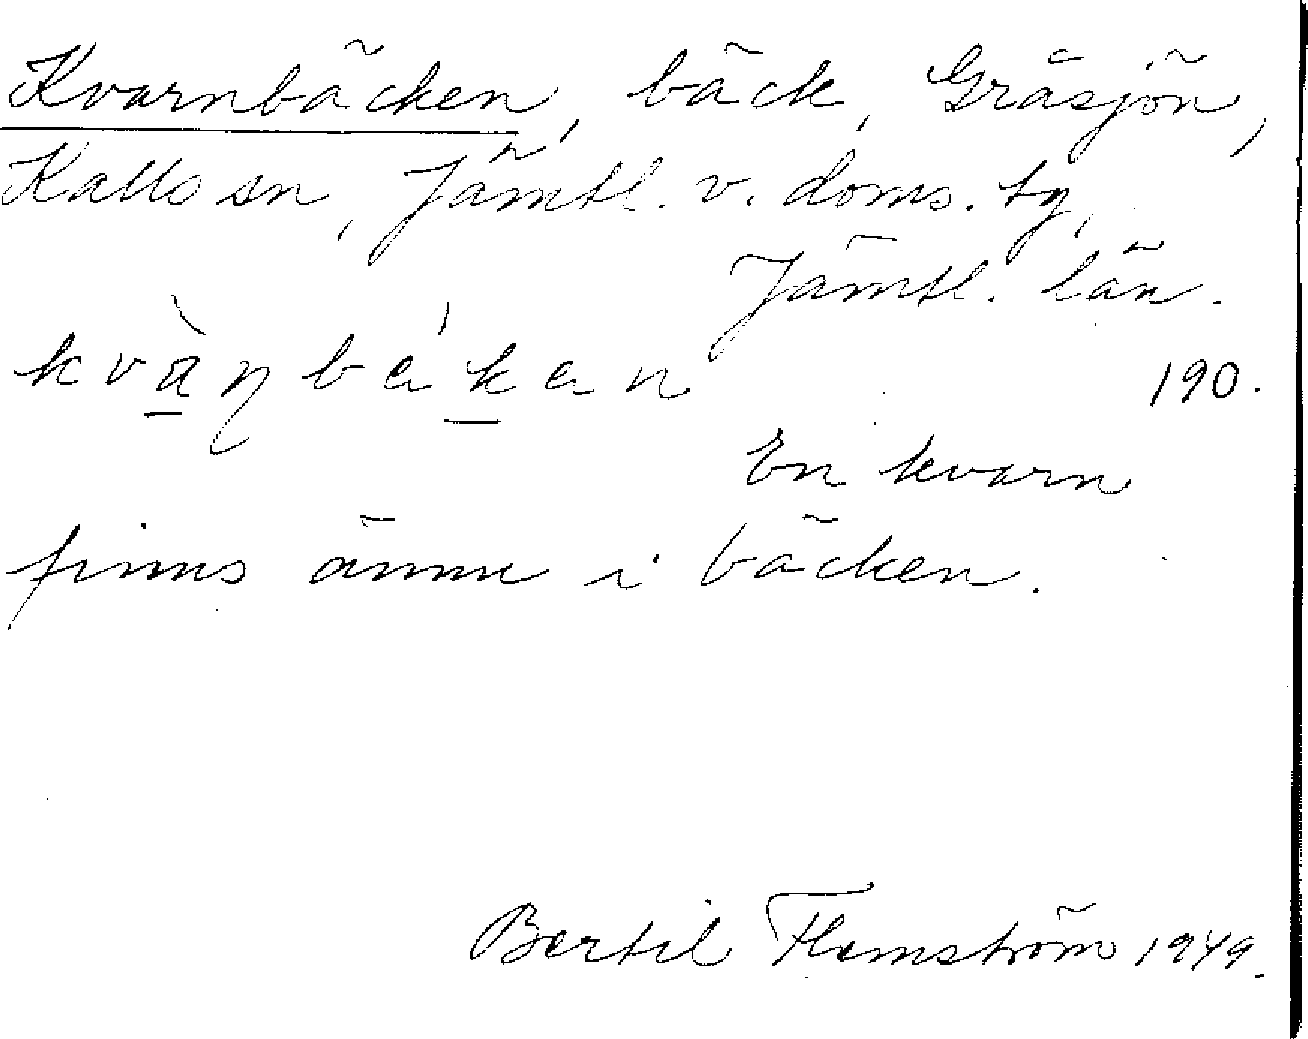 Kvarnbäcken, bäck, Gråsjön,
Kalls sn, Jämtl. v. doms. tg,
Jämtl. län.
kvàŋbákan 190.
En kvarn
finns ännu i bäcken.
Bertil Flemström 1949.